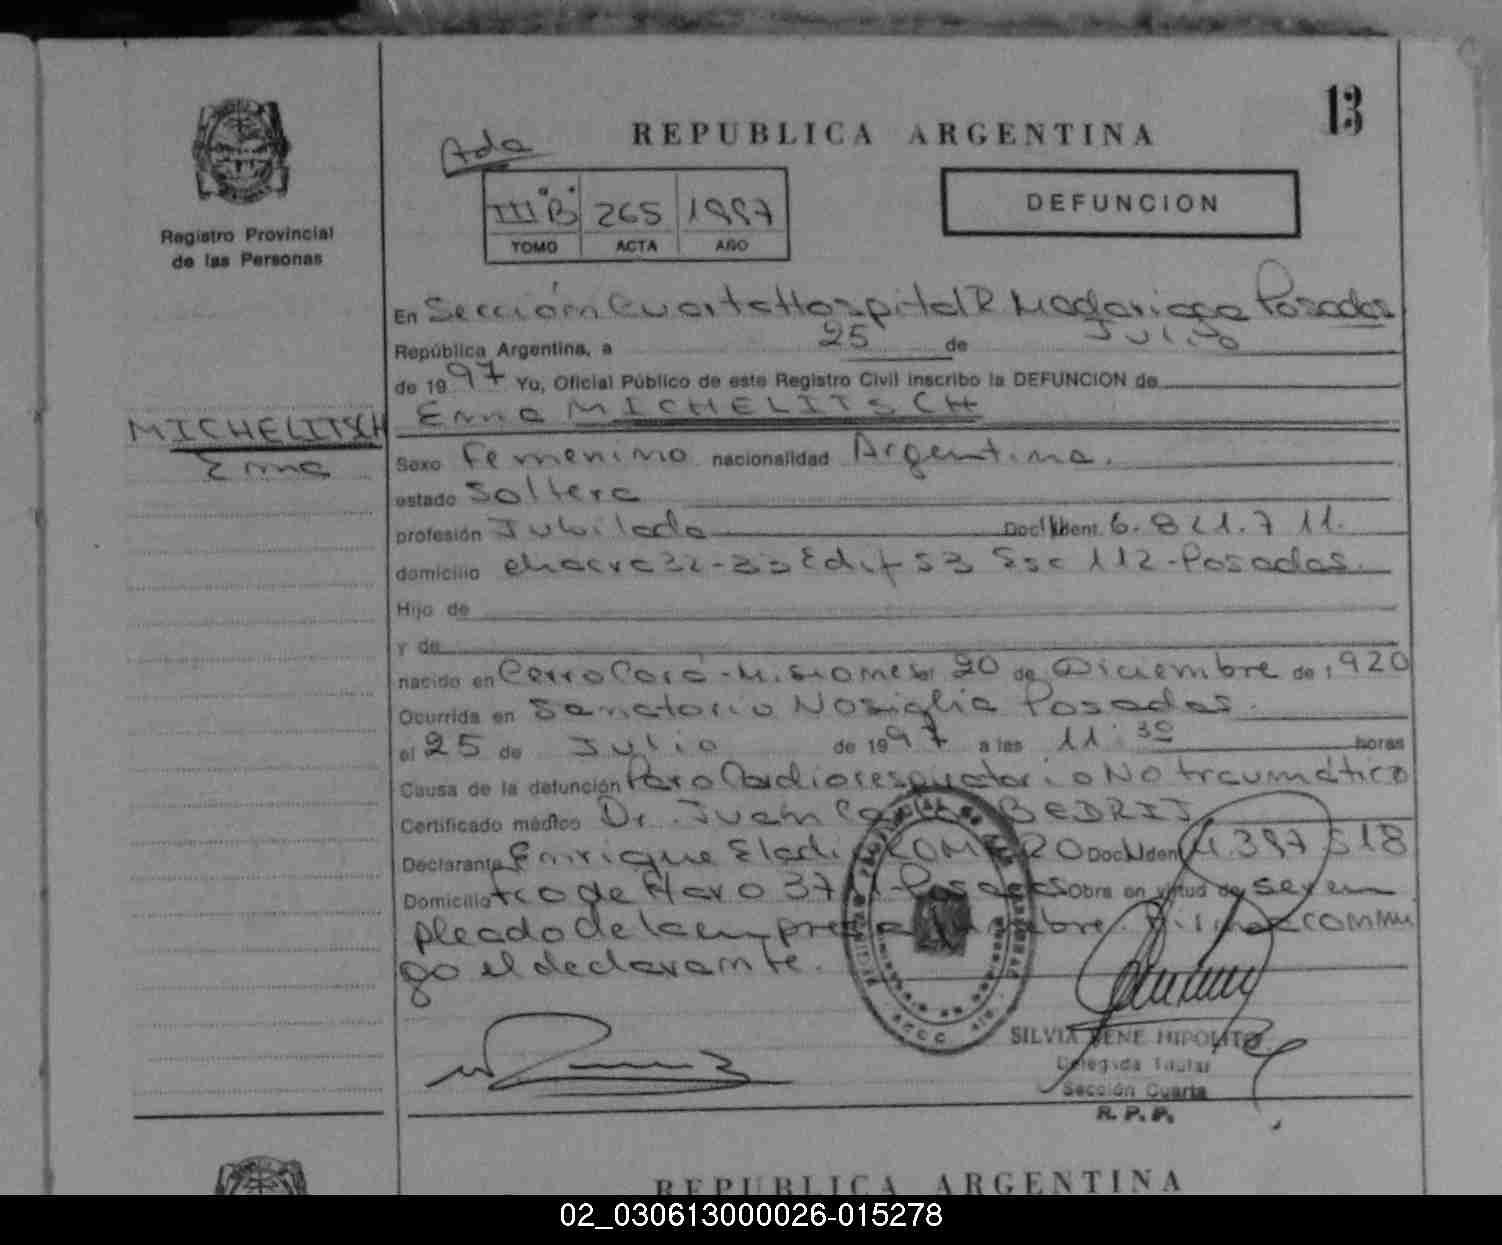 13
REPUBLICA ARGENTINA
Ada
III B 265 1997
TOMO ACTA AÑO
DEFUNCION
Registro Provincial
de las Personas
En Sección Cuarta Hospital R Madariaga Posadas
República Argentina, a 25 de Julio
de 1997 Yo, Oficial Público de este Registro Civil inscribo la DEFUNCION de
Emma MICHELITSCH
MICHELITSCH
Emma
Sexo Femenino nacionalidad Argentina.
estado Soltera
profesión Jubilada Doc. Ident. 6.821.711.
domicilio chacra 32-33 Edif 53 Esc 112 - Posadas.
Hijo de
y de
nacido en Cerro Corá - Misiones el 20 de Diciembre de 1920
Ocurrida en Sanatorio Nosiglia Posadas.
el 25 de Julio de 1997 a las 11:30 horas
Causa de la defunción Paro Cardiorespiratorio No traumático
Certificado médico Dr. Juan BEDRIJ
Declarante Enrique Eladi ROMERO Doc. Iden 4.397518
Domicilio Fco de Haro 37 - Posadas Obra en virtud de ser em
pleado de la empresa Firma conmi
go el declarante.
SILVIA IRENE HIPOLITO
Delegada Titular
Sección Cuarta
R. P. P.
REPUBLICA ARGENTINA
02_030613000026-015278